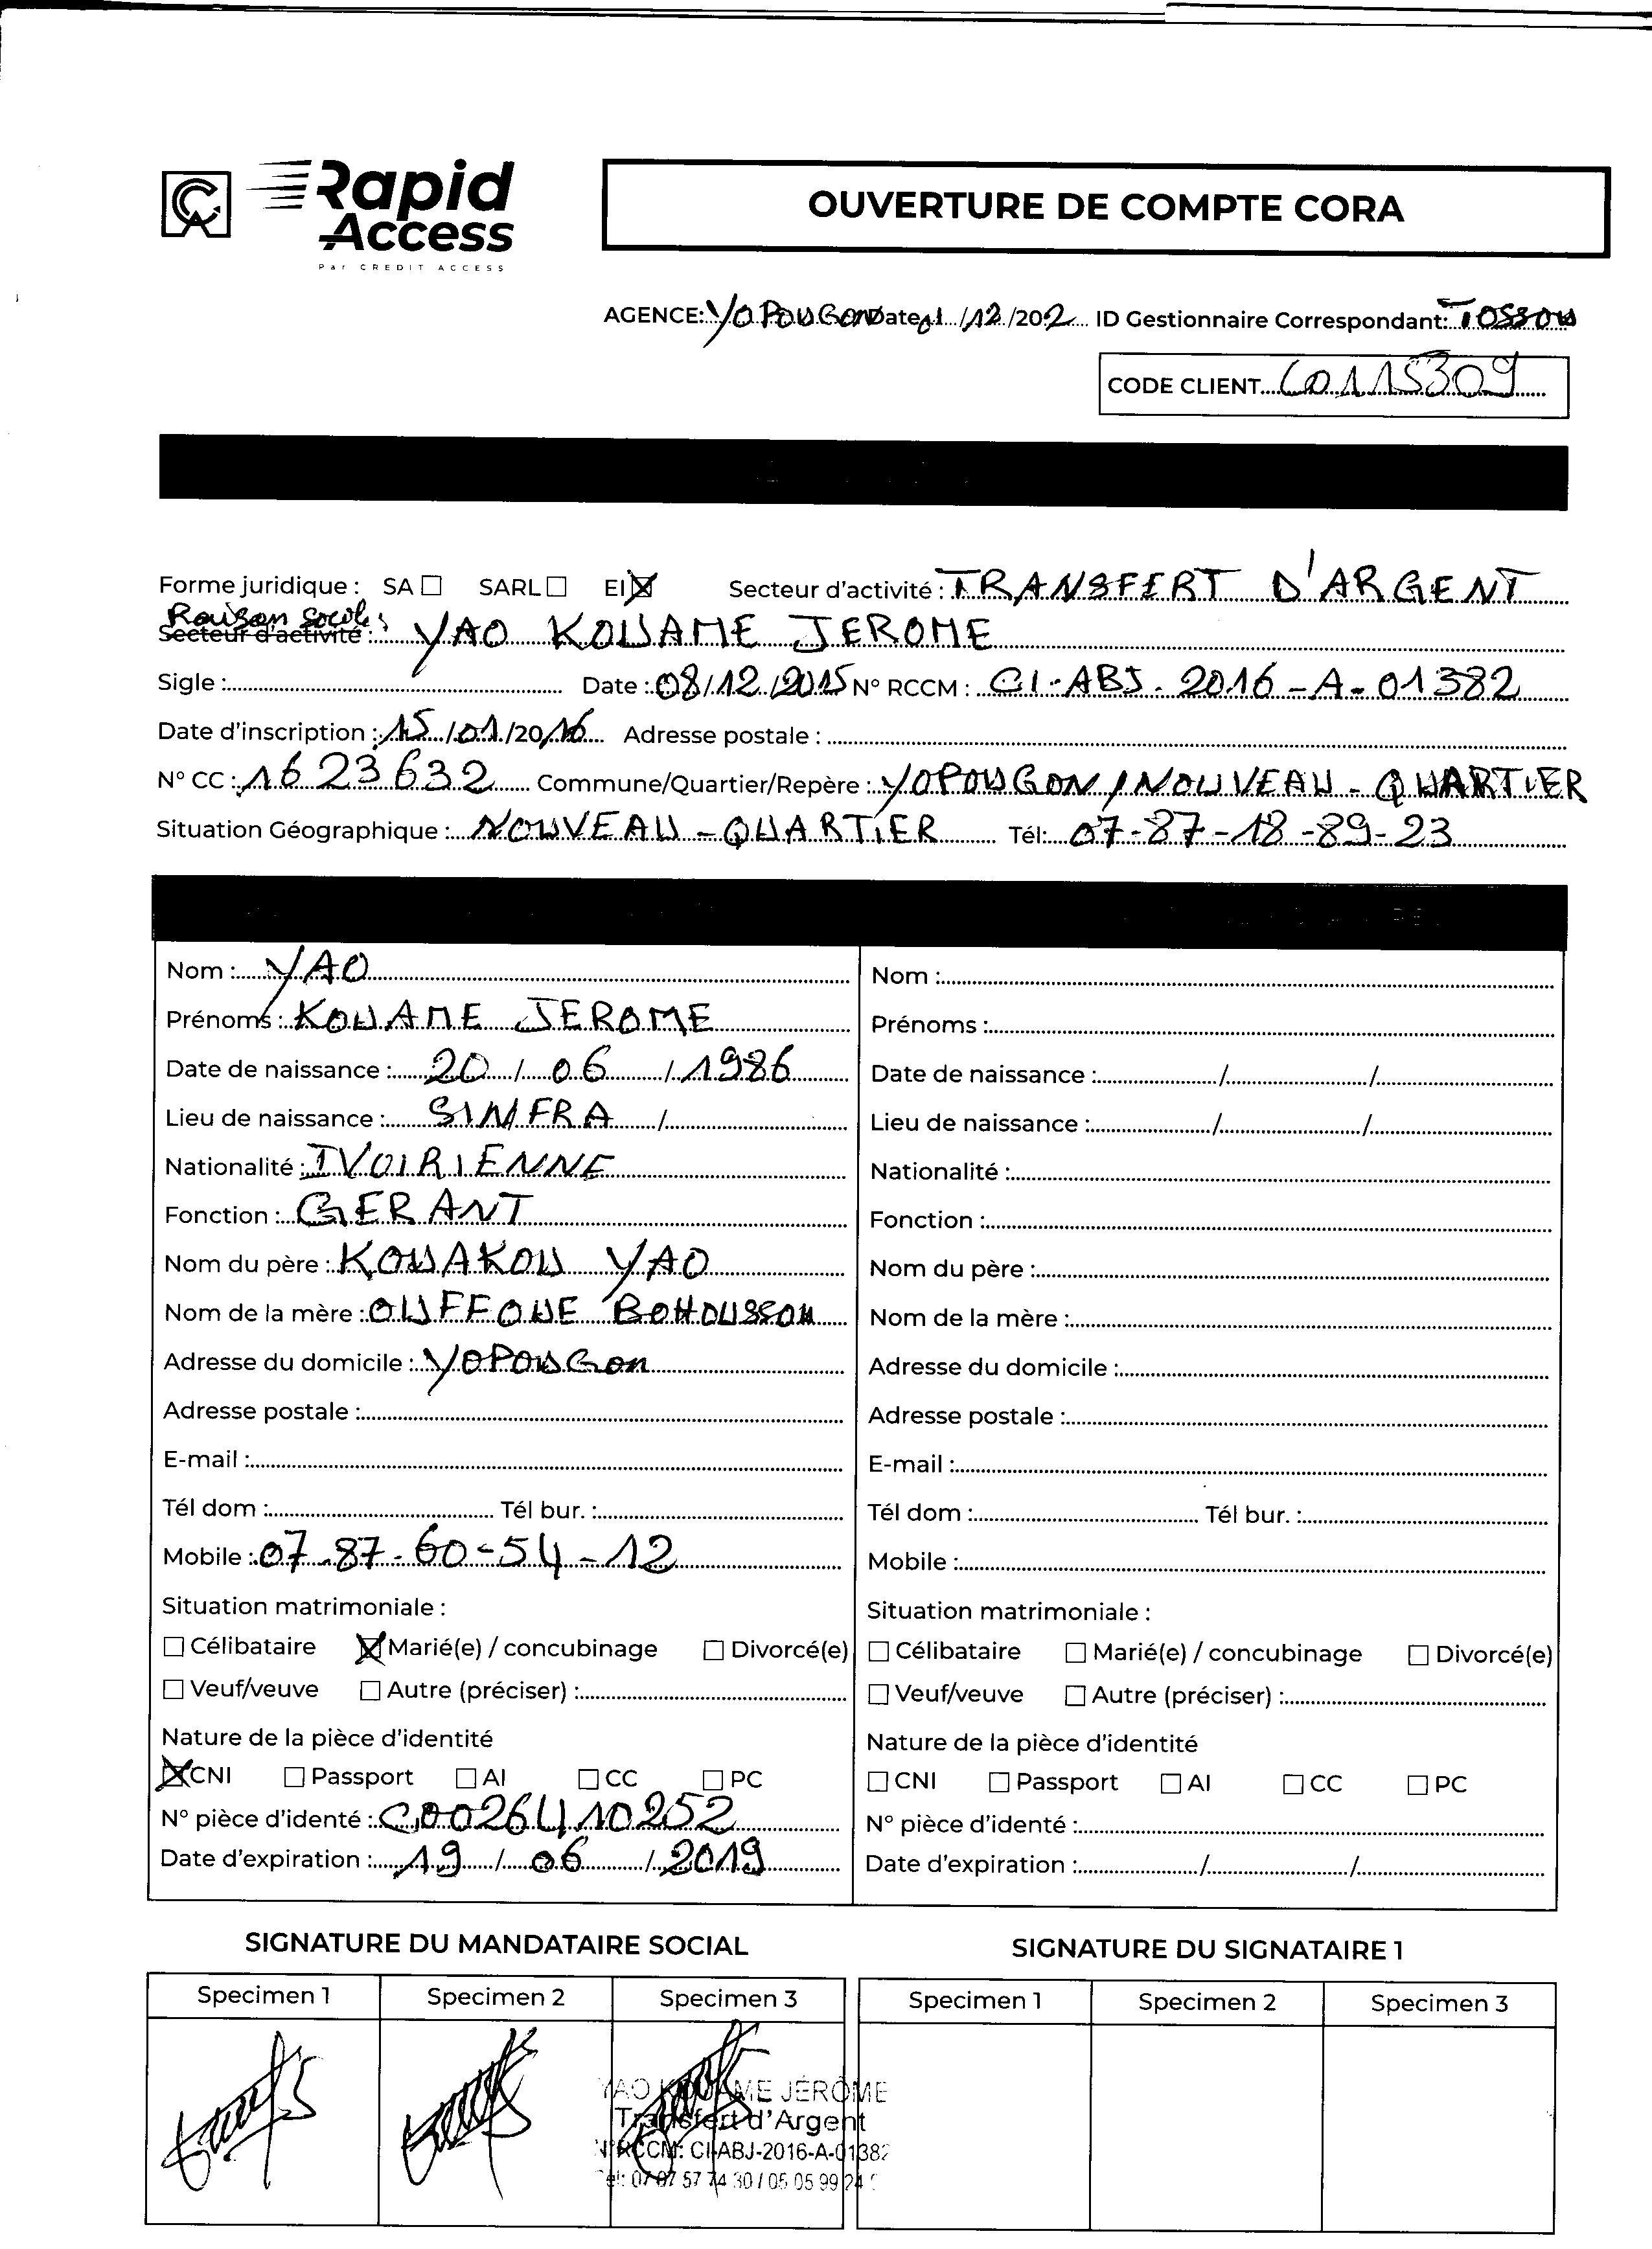 Rapid
Access
Par CREDIT ACCESS
OUVERTURE DE COMPTE CORA
AGENCE: YOPOUGON Date 01/12/202 ID Gestionnaire Correspondant: TOSSOU
CODE CLIENT 60115309
Forme juridique : SA ☐ SARL ☐ EI ☒ Secteur d'activité : TRANSFERT D'ARGENT
Raison Sociale :
Secteur d'activité : YAO KOUAME JEROME
Sigle : Date : 08/12/2015 N° RCCM : CI-ABJ-2016-A-01382
Date d'inscription : 15/01/2016 Adresse postale :
N° CC : 1623632 Commune/Quartier/Repère : YOPOUGON/NOUVEAU-QUARTIER
Situation Géographique : NOUVEAU-QUARTIER Tél: 07-87-18-89-23
Nom : YAO
Prénoms : KOUAME JEROME
Date de naissance : 20/06/1986
Lieu de naissance : SINFRA /
Nationalité : IVOIRIENNE
Fonction : GERANT
Nom du père : KOUAKOU YAO
Nom de la mère : OUFFOUE BOHOUSSOU
Adresse du domicile : YOPOUGON
Adresse postale :
E-mail :
Tél dom : Tél bur. :
Mobile : 07-87-60-54-12
Situation matrimoniale :
☐ Célibataire ☒ Marié(e) / concubinage ☐ Divorcé(e)
☐ Veuf/veuve ☐ Autre (préciser) :
Nature de la pièce d'identité
☒ CNI ☐ Passport ☐ AI ☐ CC ☐ PC
N° pièce d'identé : C00264410252
Date d'expiration : 19/06/2019
Nom :
Prénoms :
Date de naissance : / /
Lieu de naissance : / /
Nationalité :
Fonction :
Nom du père :
Nom de la mère :
Adresse du domicile :
Adresse postale :
E-mail :
Tél dom : Tél bur. :
Mobile :
Situation matrimoniale :
☐ Célibataire ☐ Marié(e) / concubinage ☐ Divorcé(e)
☐ Veuf/veuve ☐ Autre (préciser) :
Nature de la pièce d'identité
☐ CNI ☐ Passport ☐ AI ☐ CC ☐ PC
N° pièce d'identé :
Date d'expiration : / /
SIGNATURE DU MANDATAIRE SOCIAL
Specimen 1 Specimen 2 Specimen 3
YAO KOUAME JÉRÔME
Transfert d'Argent
N°RCCM: CI-ABJ-2016-A-01382
Tel: 07 07 57 74 30 / 05 05 99 24
SIGNATURE DU SIGNATAIRE 1
Specimen 1 Specimen 2 Specimen 3